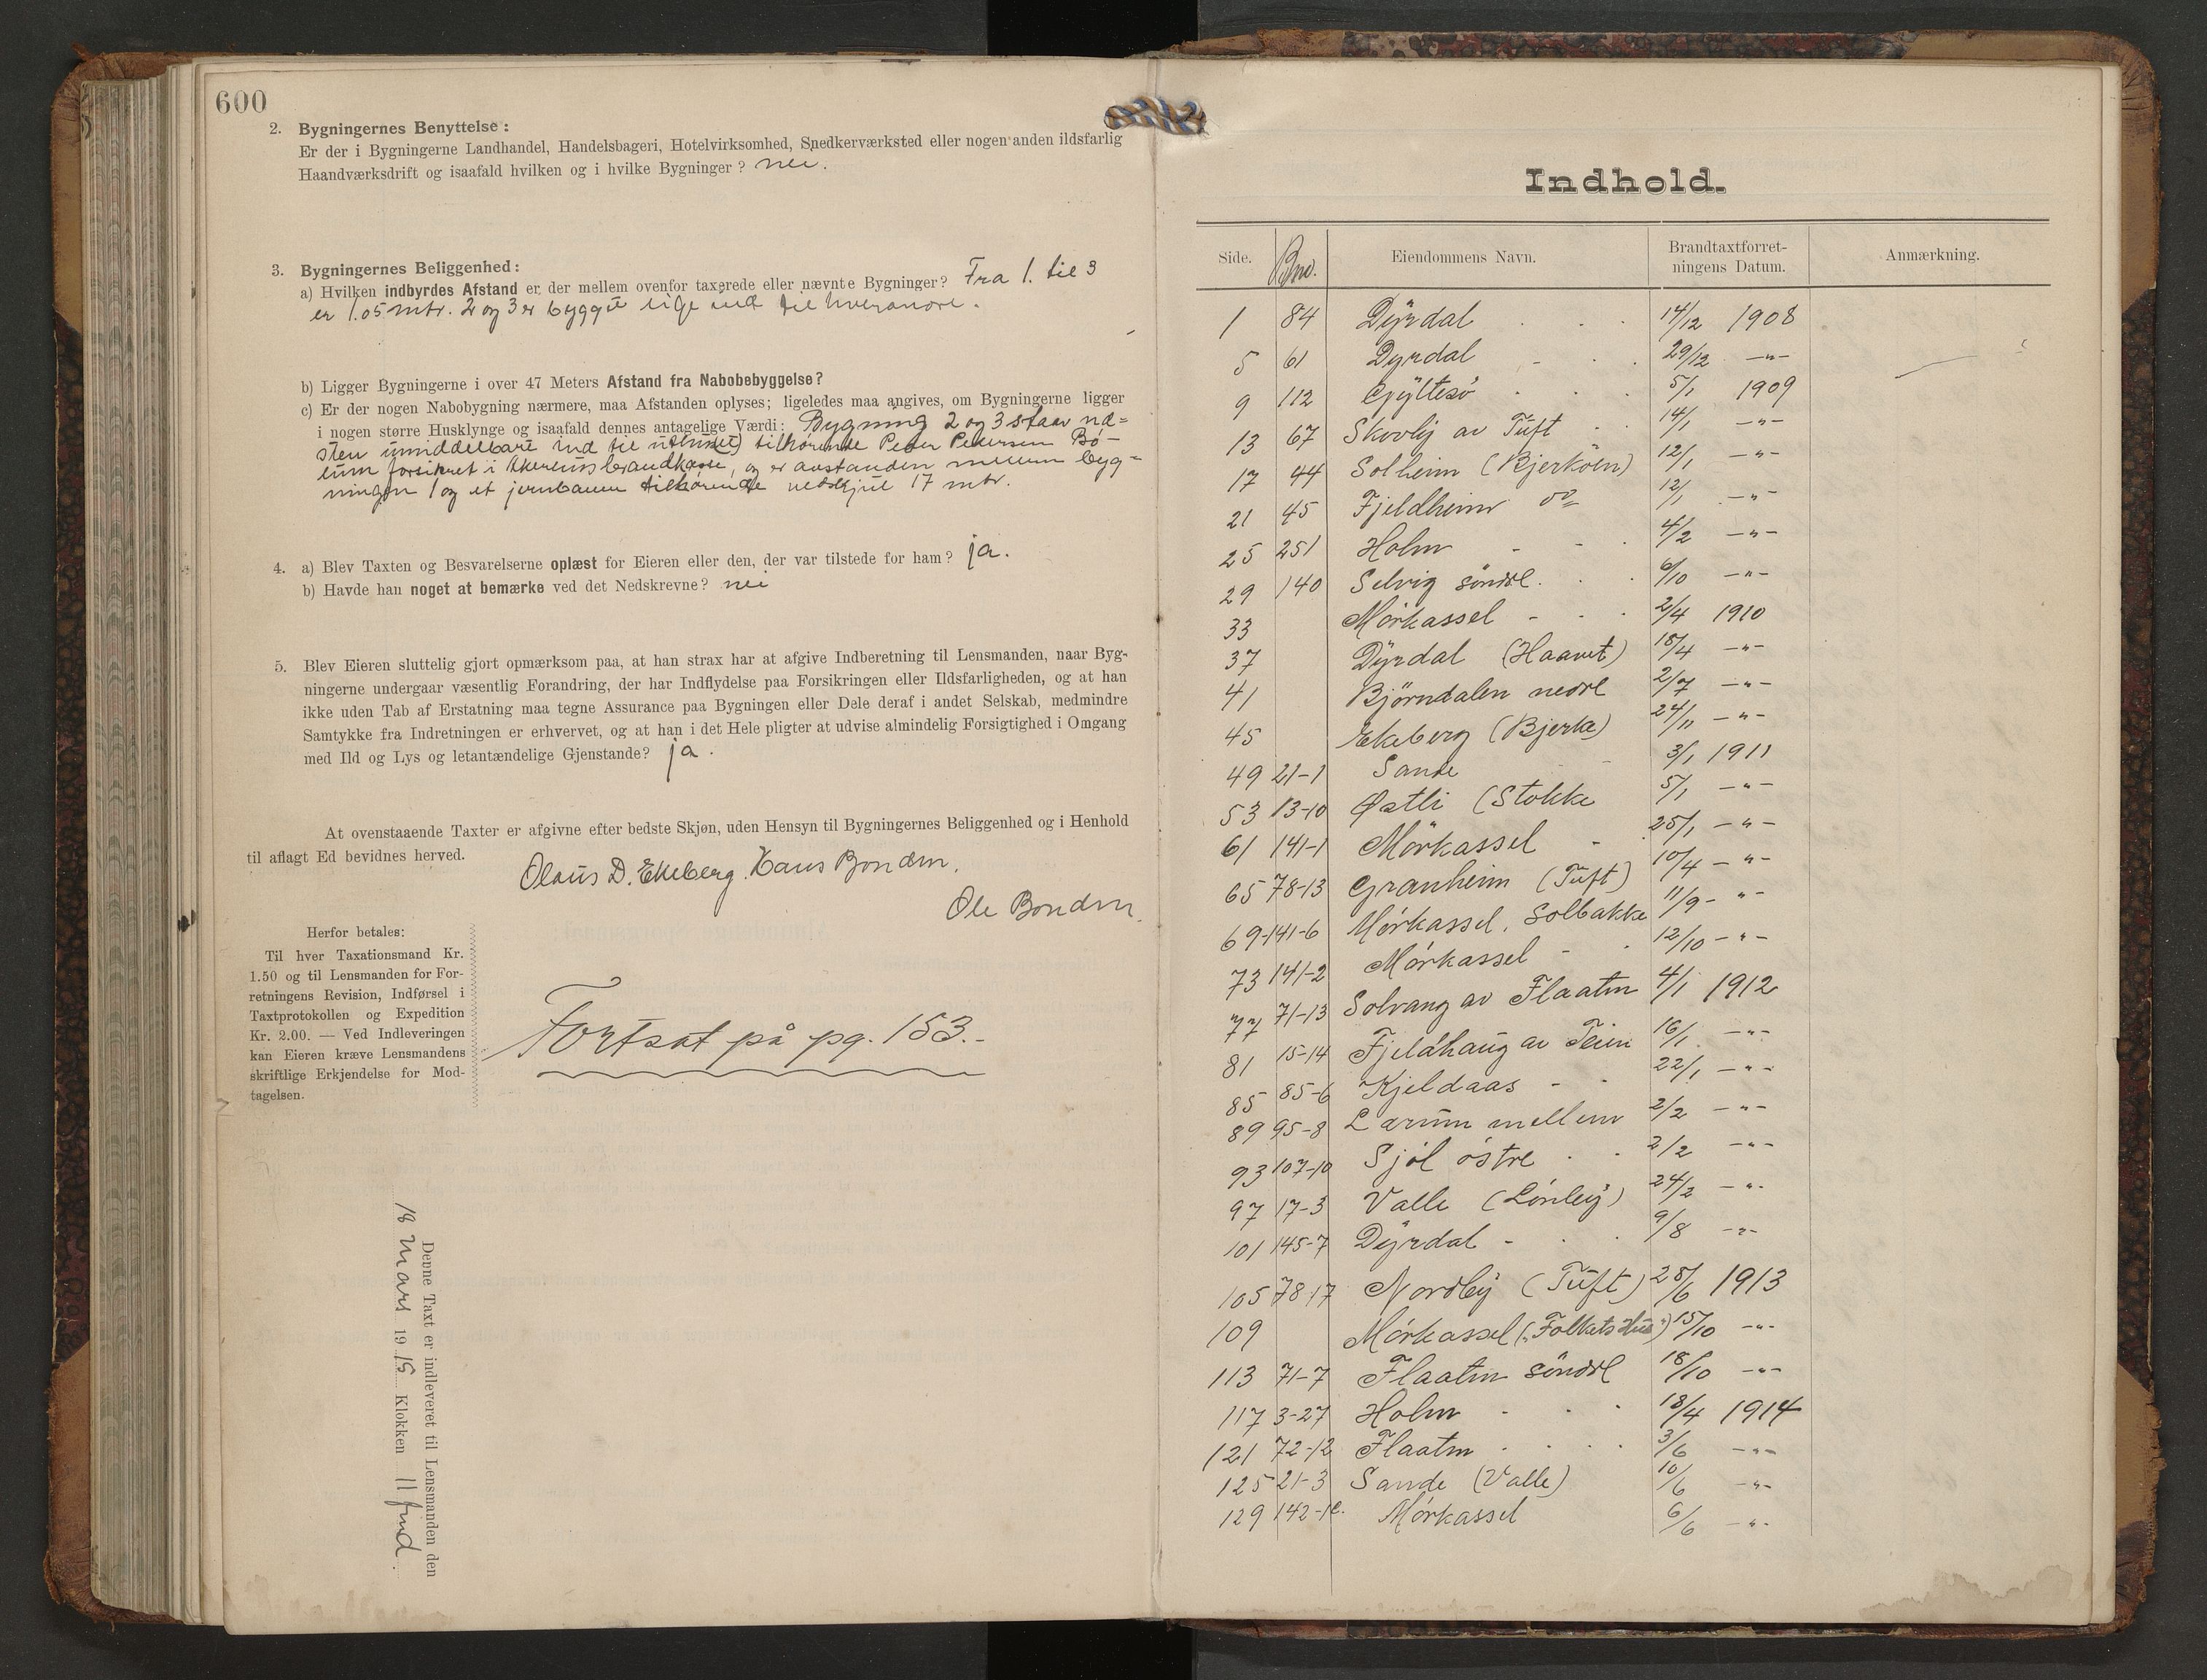 600
2. Bygningernes Benyttelse:
Er der i Bygningerne Landhandel, Handelsbageri, Hotelvirksomhed, Snedkerværksted eller nogen anden ildsfarlig
Haandværksdrift og isaafald hvilken og i hvilke Bygninger? nei.
3. Bygningernes Beliggenhed:
a) Hvilken indbyrdes Afstand er der mellem ovenfor taxerede eller nævnte Bygninger? Fra 1. til 3
er 1.05 mtr. 2 og 3 er bygget lige ind til hverandre.
b) Ligger Bygningerne i over 47 Meters Afstand fra Nabobebyggelse?
c) Er der nogen Nabobygning nærmere, maa Afstanden oplyses; ligeledes maa angives, om Bygningerne ligger
i nogen større Husklynge og isaafald dennes antagelige Værdi: Bygning 2 og 3 staar næ=
sten umiddelbart ind til uthuset) tilhørende Peder Pedersen Bø-
lum forsikret i Akershus brandkasse, og er avstanden mellem byg=
ningen 1 og et jernbanen tilhørende vedskjul 17 mtr.
4. a) Blev Taxten og Besvarelserne oplæst for Eieren eller den, der var tilstede for ham? ja.
b) Havde han noget at bemærke ved det Nedskrevne? nei
5. Blev Eieren sluttelig gjort opmærksom paa, at han strax har at afgive Indberetning til Lensmanden, naar Byg-
ningerne undergaar væsentlig Forandring, der har Indflydelse paa Forsikringen eller Ildsfarligheden, og at han
ikke uden Tab af Erstatning maa tegne Assurance paa Bygningen eller Dele deraf i andet Selskab, medmindre
Samtykke fra Indretningen er erhvervet, og at han i det Hele pligter at udvise almindelig Forsigtighed i Omgang
med Ild og Lys og letantændelige Gjenstande? ja.
At ovenstaaende Taxter er afgivne efter bedste Skjøn, uden Hensyn til Bygningernes Beliggenhed og i Henhold
til aflagt Ed bevidnes herved.
Olaus D. Ekeberg. Hans Bonden.
Ole Bonden.
Herfor betales:
Til hver Taxationsmand Kr.
1.50 og til Lensmanden for For-
retningens Revision, Indførsel i
Taxtprotokollen og Expedition
Kr. 2.00. — Ved Indleveringen
kan Eieren kræve Lensmandens
skriftlige Erkjendelse for Mod-
tagelsen.
Fortsat på pg. 153.-
Denne Taxt er indleveret til Lensmanden den
18 Mars 1915 Klokken 11 fmd.
Indhold.
Side. Bno. Eiendommens Navn. Brandtaxtforret-
ningens Datum. Anmærkning.
1 84 Dyrdal 14/12 1908
5 61 Dyrdal 29/12 -"-
9 112 Gyltesø 5/1 1909
13 67 Skovly av Tuft 14/1 -"-
17 44 Solheim (Bjerköen) 12/1 -"-
21 45 Fjeldheim do 12/1 -"-
25 251 Holm 4/2 -"-
29 140 Selvig söndre 6/10 -"-
33 Mörkassel 2/4 1910
37 Dyrdal (Haavet) 18/4 -"-
41 Björndalen nedre 2/7 -"-
45 Ekeberg (Bjerke) 24/11 -"-
49 21-1 Sande 3/1 1911
53 13-10 Østli (Stokke 5/1 -"-
61 141-1 Mörkassel 25/1 -"-
65 78-13 Granheim (Tuft) 10/4 -"-
69 141-6 Mörkassel, Solbakke 11/9 -"-
73 141-2 Mörkassel 12/10 -"-
77 71-13 Solvang av Flaaten 4/1 1912
81 15-14 Fjeldhaug av Teien 16/1 -"-
85 85-6 Kjeldaas 22/1 -"-
89 95-8 Lærum mellem 2/2 -"-
93 107-10 Sjöl östre 2/2 -"-
97 17-3 Valle (Lönley) 24/2 -"-
101 145-7 Dyrdal 9/8 -"-
105 78-17 Nordby (Tuft) 28/6 1913
109 Mörkassel ("Folkets Hus") 15/10 -"-
113 71-7 Flaaten söndre 18/10 -"-
117 3-27 Holm 18/4 1914
121 72-12 Flaaten 3/6 -"-
125 21-3 Sande (Valle) 10/6 -"-
129 142-1c. Mörkassel 6/6 -"-